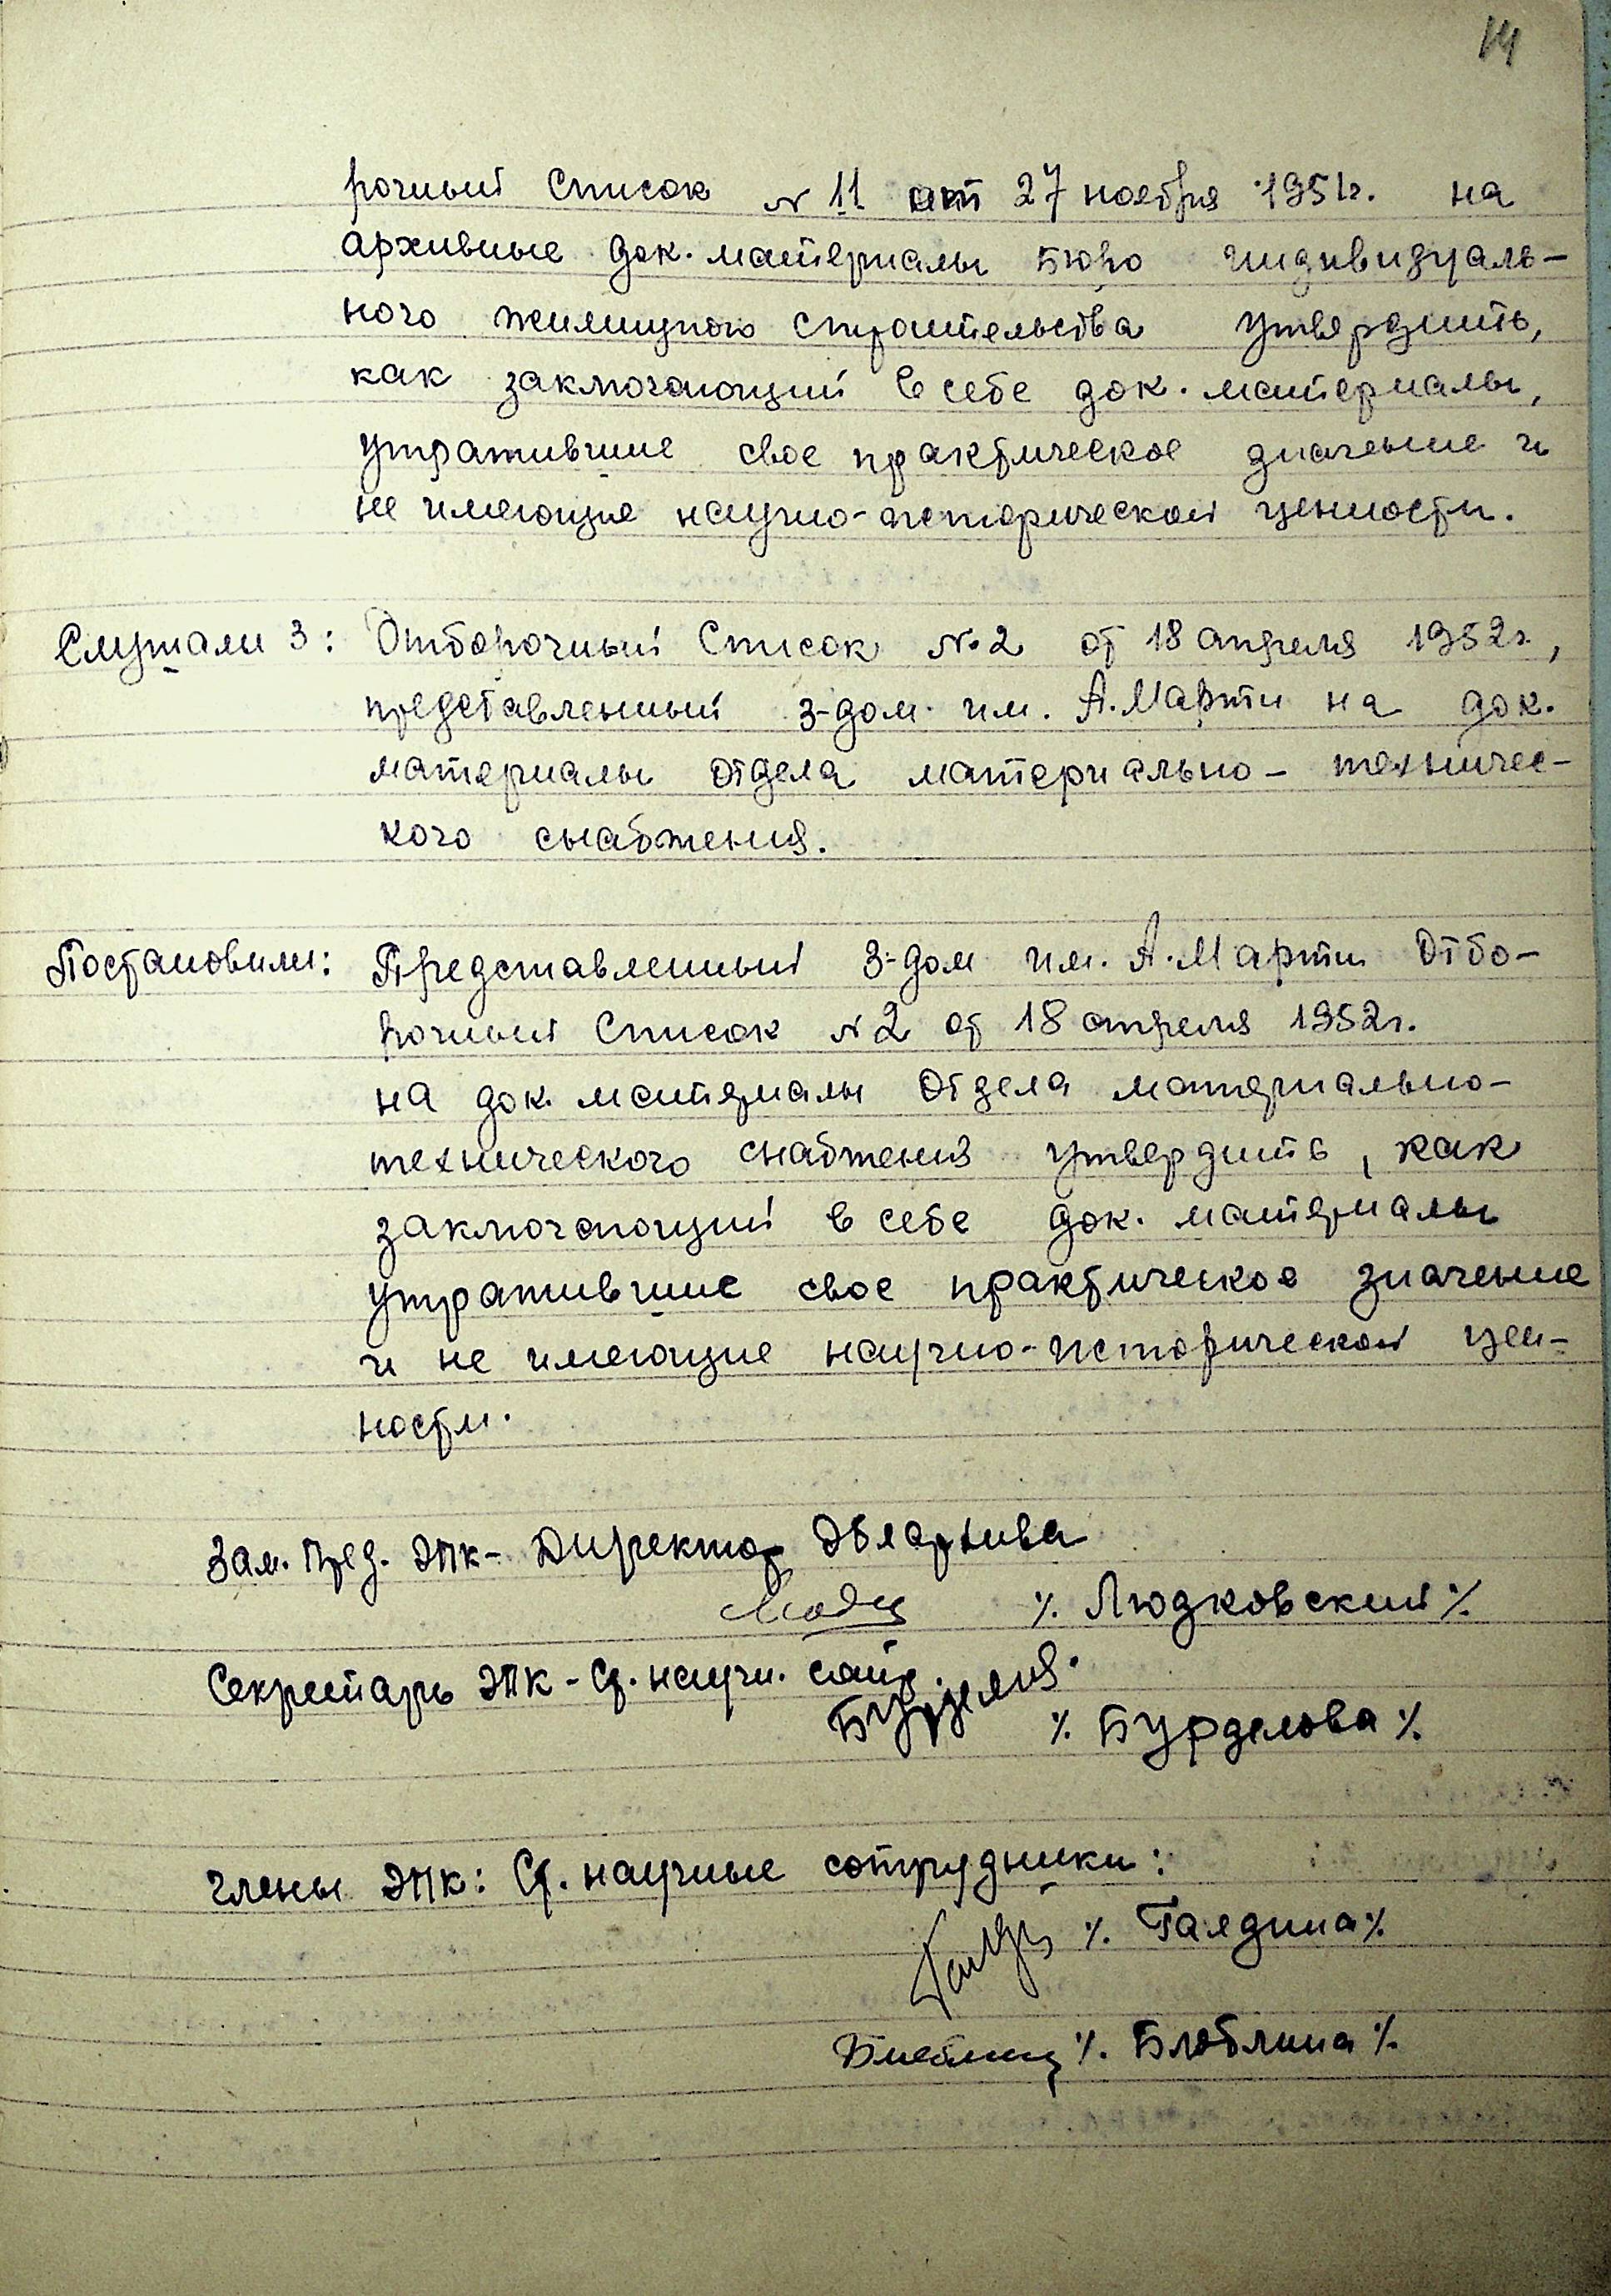 14
рочный Список № 11 от 27 ноября 1951г. на
архивные док. материалы Бюро индивидуаль-
ного жилищного строительства утвердить,
как заключающий в себе док. материалы,
утратившие свое практическое значение и
не имеющие научно-исторической ценности.
Слушали 3: Отборочный Список № 2 от 18 апреля 1952г.,
представленный з-дом им. А. Марти на док.
материалы отдела материально-техничес-
кого снабжения.
Постановили: Представленный З-дом им. А. Марти Отбо-
рочный Список № 2 от 18 апреля 1952г.
на док. материалы отдела материально-
технического снабжения утвердить, как
заключающий в себе док. материалы
утратившие свое практическое значение
и не имеющие научно-исторической цен-
ности.
Зам. Пред. ЭПК - Директор Облархива
٪ Людковский ٪
Секретарь ЭПК - Ст. научн. сотр.
٪ Бурделова ٪
Члены ЭПК: Ст. научные сотрудники:
٪ Галдина ٪
٪ Блюблина ٪